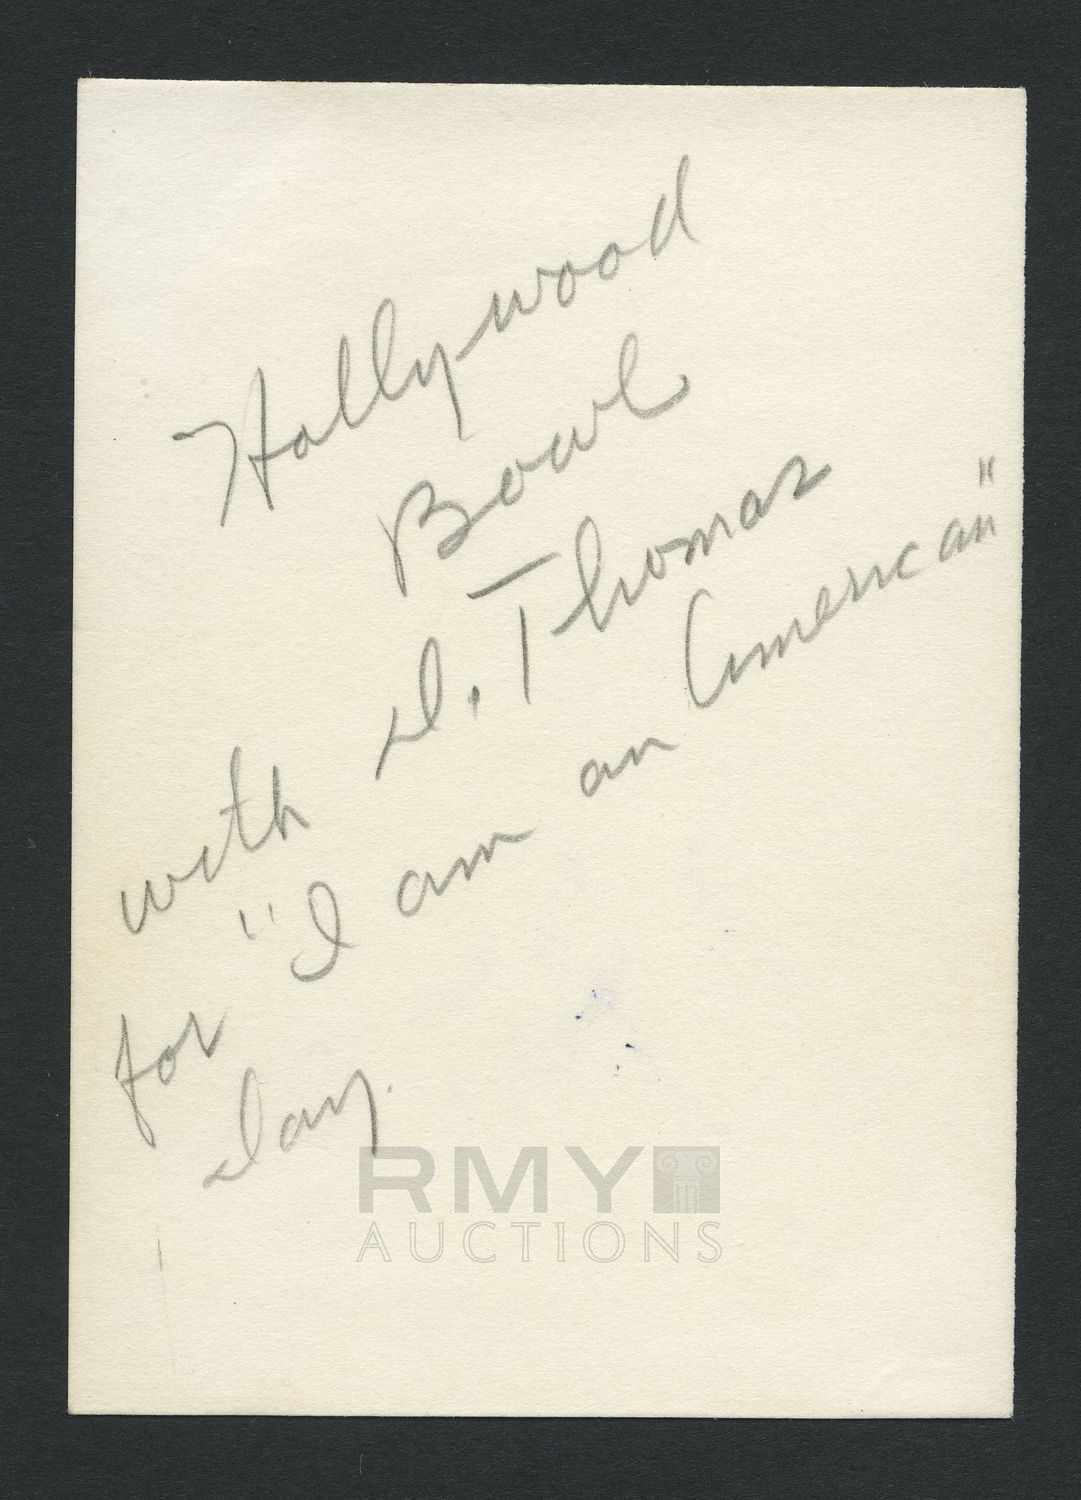 Hollywood
Bowl
with D. Thomas
for "I am an American"
Day.
RMY
AUCTIONS